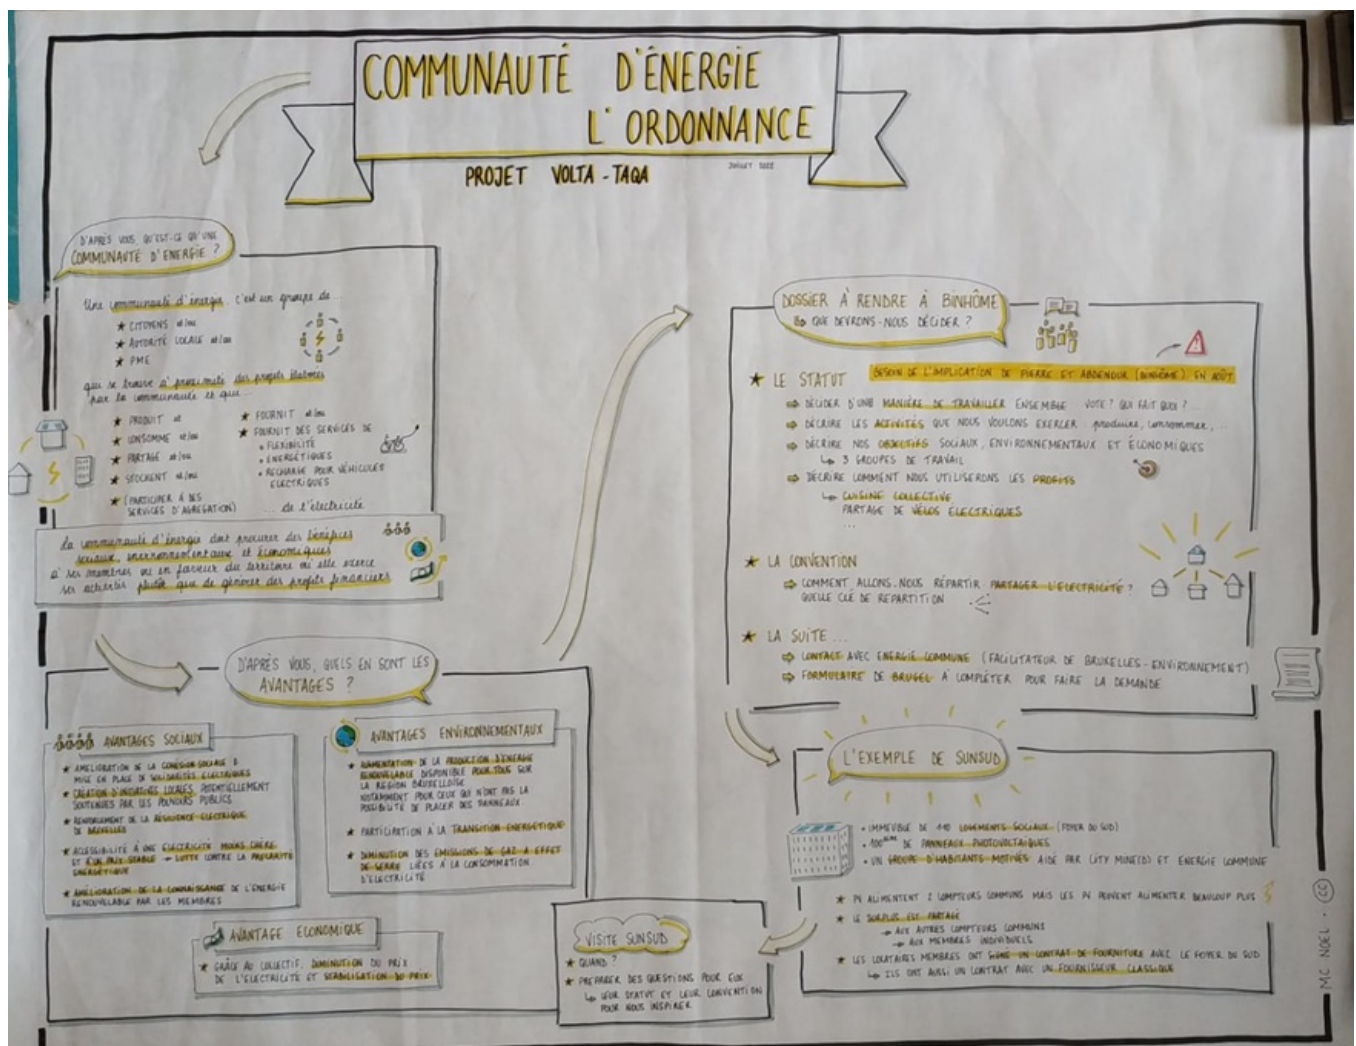 COMMUNAUTÉ D'ÉNERGIE
L'ORDONNANCE
PROJET VOLTA-TAQA
JUILLET 2022
D'APRÈS VOUS, QU'EST-CE QU'UNE
COMMUNAUTÉ D'ÉNERGIE ?
Une communauté d'énergie, c'est un groupe de...
★ CITOYENS et/ou
★ AUTORITÉ LOCALE et/ou
★ PME
qui se trouve à proximité des projets élaborés
par la communauté et qui...
★ PRODUIT et
★ CONSOMME et/ou
★ PARTAGE et/ou
★ STOCKENT et/ou
★ (PARTICIPER À DES
SERVICES D'AGRÉGATION)
★ FOURNIT et/ou
★ FOURNIT DES SERVICES DE
• FLEXIBILITÉ
ÉNERGÉTIQUES
• RECHARGE POUR VÉHICULES
ELECTRIQUES
... de l'électricité
La communauté d'énergie doit procurer des bénéfices
sociaux, environnementaux et économiques
à ses membres ou en faveur du territoire où elle exerce
ses activités plutôt que de générer des profits financiers
D'APRÈS VOUS, QUELS EN SONT LES
AVANTAGES ?
AVANTAGES SOCIAUX
★ AMÉLIORATION DE LA COHÉSION SOCIALE &
MISE EN PLACE DE SOLIDARITÉS ELECTRIQUES
★ CRÉATION D'INITIATIVES LOCALES POTENTIELLEMENT
SOUTENUES PAR LES POUVOIRS PUBLICS
★ RENFORCEMENT DE LA RÉSILIENCE ELECTRIQUE
DE BRUXELLES
★ ACCESSIBILITÉ À UNE ELECTRICITÉ MOINS CHÈRE
ET À UN PRIX STABLE → LUTTE CONTRE LA PRÉCARITÉ
ENERGÉTIQUE
★ AMÉLIORATION DE LA CONNAISSANCE DE L'ÉNERGIE
RENOUVELABLE PAR LES MEMBRES
AVANTAGES ENVIRONNEMENTAUX
★ AUGMENTATION DE LA PRODUCTION D'ÉNERGIE
RENOUVELABLE DISPONIBLE POUR TOUS SUR
LA RÉGION BRUXELLOISE
NOTAMMENT POUR CEUX QUI N'ONT PAS LA
POSSIBILITÉ DE PLACER DES PANNEAUX
★ PARTICIPATION À LA TRANSITION ENERGÉTIQUE
★ DIMINUTION DES ÉMISSIONS DE GAZ À EFFET
DE SERRE LIÉES À LA CONSOMMATION
D'ÉLECTRICITÉ
AVANTAGE ECONOMIQUE
★ GRÂCE AU COLLECTIF, DIMINUTION DU PRIX
DE L'ELECTRICITÉ ET STABILISATION DU PRIX
DOSSIER À RENDRE À BINHÔME
↳ QUE DEVRONS-NOUS DÉCIDER ?
★ LE STATUT
BESOIN DE L'IMPLICATION DE PIERRE ET ABDENOUR (BINHÔME) EN AOÛT
⇨ DÉCIDER D'UNE MANIÈRE DE TRAVAILLER ENSEMBLE VOTE? QUI FAIT QUOI ?...
⇨ DÉCRIRE LES ACTIVITÉS QUE NOUS VOULONS EXERCER : produire, consommer, ...
⇨ DÉCRIRE NOS OBJECTIFS SOCIAUX, ENVIRONNEMENTAUX ET ÉCONOMIQUES
↳ 3 GROUPES DE TRAVAIL
⇨ DÉCRIRE COMMENT NOUS UTILISERONS LES PROFITS
↳ CUISINE COLLECTIVE
PARTAGE DE VÉLOS ÉLECTRIQUES
...
★ LA CONVENTION
⇨ COMMENT ALLONS-NOUS RÉPARTIR PARTAGER L'ELECTRICITÉ ?
QUELLE CLÉ DE REPARTITION
★ LA SUITE ...
⇨ CONTACT AVEC ENERGIE COMMUNE (FACILITATEUR DE BRUXELLES-ENVIRONNEMENT)
⇨ FORMULAIRE DE BRUGEL À COMPLÉTER POUR FAIRE LA DEMANDE
L'EXEMPLE DE SUNSUD
• IMMEUBLE DE 110 LOGEMENTS SOCIAUX (FOYER DU SUD)
DE PANNEAUX PHOTOVOLTAÏQUES
• UN GROUPE D'HABITANTS MOTIVÉS AIDÉ PAR CITY MINE(D) ET ENERGIE COMMUNE
★ PV ALIMENTENT 2 COMPTEURS COMMUNS MAIS LES PV PEUVENT ALIMENTER BEAUCOUP PLUS
★ LE SURPLUS EST PARTAGÉ
→ AUX AUTRES COMPTEURS COMMUNS
→ AUX MEMBRES INDIVIDUELS
★ LES LOCATAIRES MEMBRES ONT SIGNÉ UN CONTRAT DE FOURNITURE AVEC LE FOYER DU SUD
↳ ILS ONT AUSSI UN CONTRAT AVEC UN FOURNISSEUR CLASSIQUE
VISITE SUNSUD
★ QUAND ?
★ PRÉPARER DES QUESTIONS POUR EUX
↳ LEUR STATUT ET LEUR CONVENTION
POUR NOUS INSPIRER
MC NOEL • CC